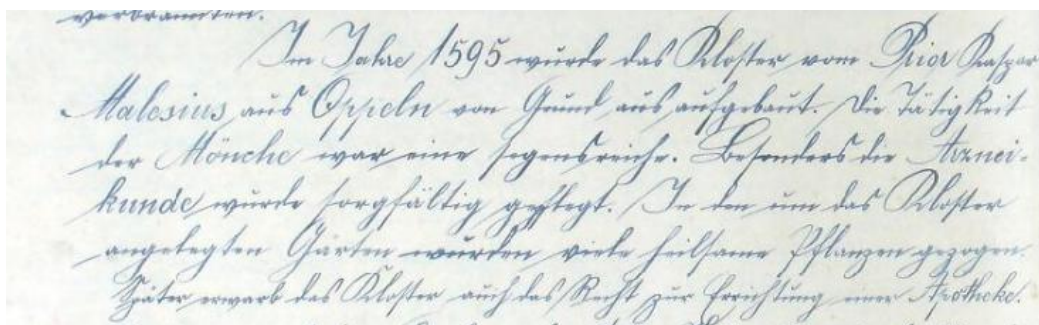 verbrannten.
Im Jahre 1595 wurde das Kloster vom Prior Kaspar
Malesius aus Oppeln von Grund aus aufgebaut. Die Tätigkeit
der Mönche war eine segensreiche. Besonders die Arznei-
kunde wurde sorgfältig gepflegt. In den um das Kloster
angelegten Gärten wurden viele heilsame Pflanzen gezogen.
Später erwarb das Kloster auch das Recht zur Errichtung einer Apotheke.